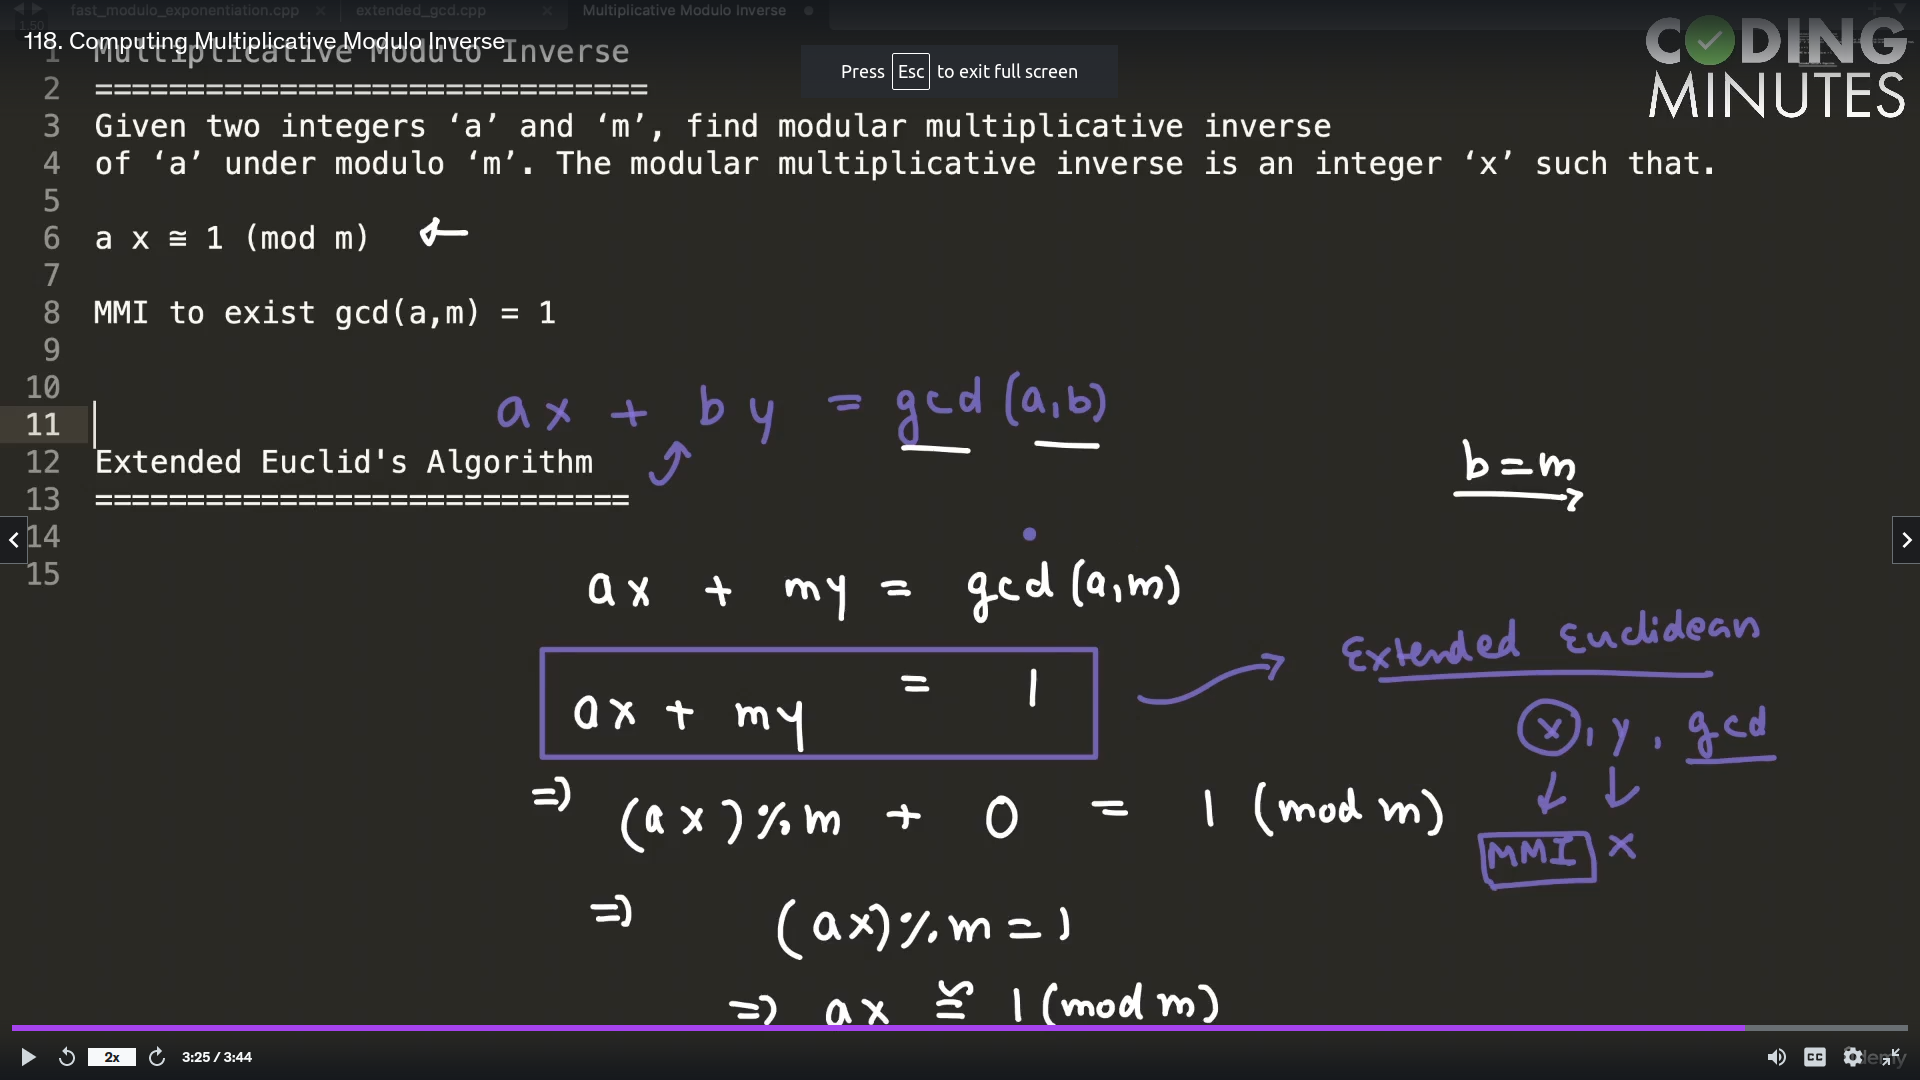 fast_modulo_exponentiation.cpp × extended_gcd.cpp × Multiplicative Modulo Inverse
118. Computing Multiplicative Modulo Inverse
CODING MINUTES
Press Esc to exit full screen
1 Multiplicative Modulo Inverse
2 ==============================
3 Given two integers ‘a’ and ‘m’, find modular multiplicative inverse
4 of ‘a’ under modulo ‘m’. The modular multiplicative inverse is an integer ‘x’ such that.
5
6 a x ≅ 1 (mod m) ←
7
8 MMI to exist gcd(a,m) = 1
9
10
ax + by = gcd (a,b)
11
12 Extended Euclid's Algorithm
b=m
13 =============================
14
15
ax + my = gcd (a,m)
Extended Euclidean
ax + my = 1
x, y, gcd
=> (ax)%m + 0 = 1 (mod m)
MMI x
=> (ax)%m=1
=> ax ≅ 1(mod m)
2x 3:25 / 3:44 CC